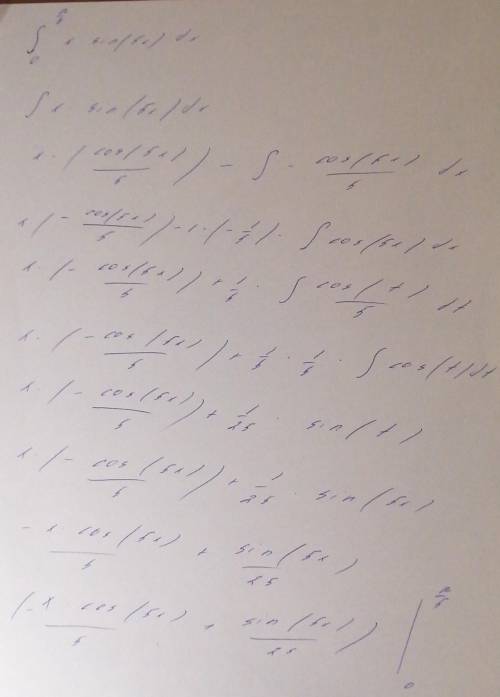 ∫₀^{π/5} x sin(5x) dx
∫ x sin(5x) dx
x · ( cos(5x)/5 ) - ∫ - cos(5x)/5 dx
x ( - cos(5x)/5 ) - 1 · ( - 1/5 ) · ∫ cos(5x) dx
x · ( - cos(5x)/5 ) + 1/5 · ∫ cos(t)/5 dt
x · ( - cos(5x)/5 ) + 1/5 · 1/5 · ∫ cos(t) dt
x · ( - cos(5x)/5 ) + 1/25 · sin(t)
x · ( - cos(5x)/5 ) + 1/25 · sin(5x)
- x · cos(5x)/5 + sin(5x)/25
( - x · cos(5x)/5 + sin(5x)/25 ) |₀^{π/5}